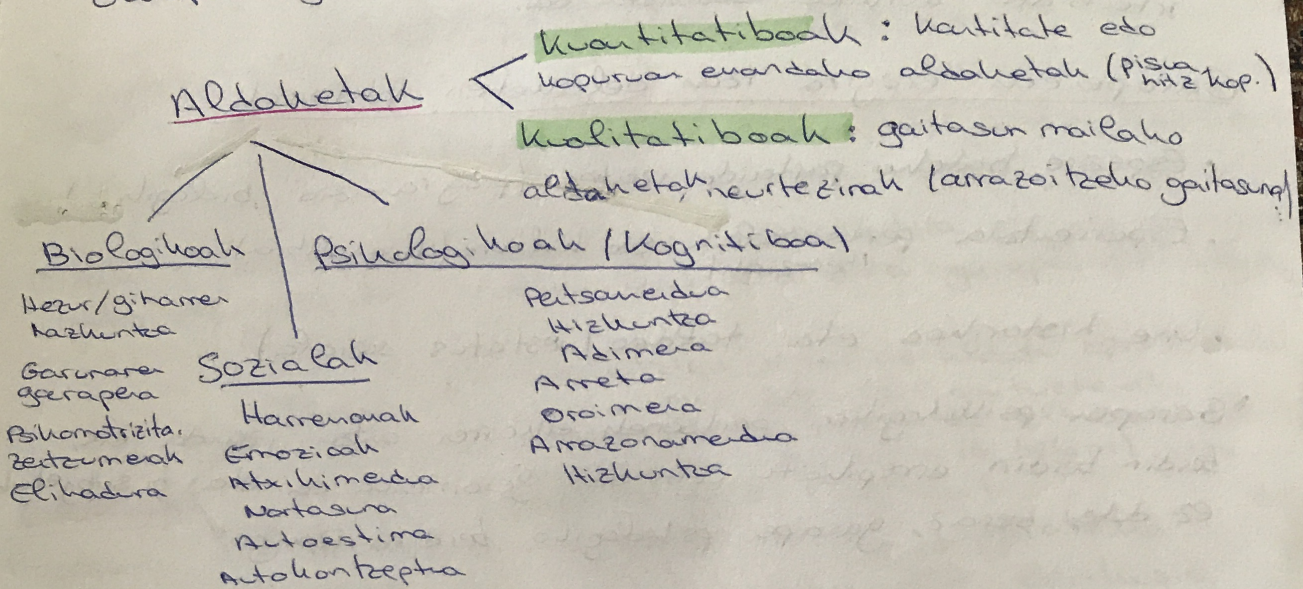 Aldaketak
Kuantitatiboak : kantitate edo
kopuruan emandako aldaketak (pisua, hitz kop.)
Kualitatiboak : gaitasun mailako
aldaketak, neurtezinak (arrazoitzeko gaitasuna)
Biologikoak
Hezur/giharren
hazkuntza
Garunaren
garapena
Psikomotrizita.
Zentzumenak
Elikadura
Sozialak
Harremanak
Emozioak
Atxikimendua
Nortasuna
Autoestima
Autokontzeptua
Psikologikoak / Kognitiboa)
Pentsamendua
Hizkuntza
Adimena
Arreta
Oroimena
Arrazonamendua
Hizkuntza